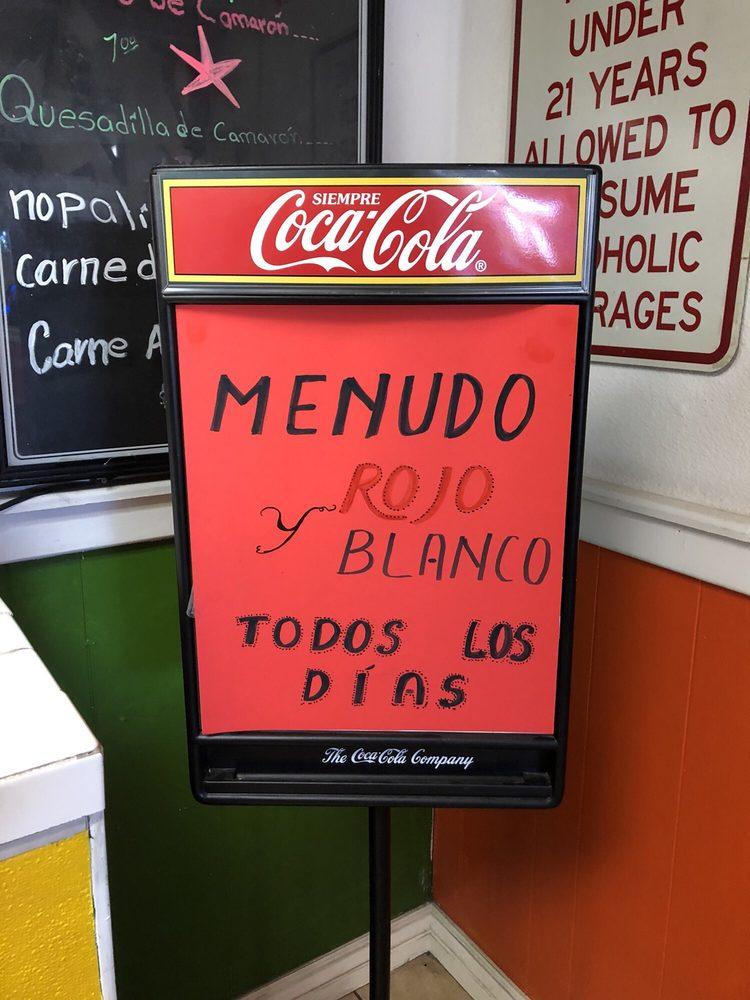 de Camarón....
7⁰⁰
Quesadilla de Camarón....
carne
Carne
UNDER
21 YEARS
ALLOWED TO
SIEMPRE
Coca-Cola®
MENUDO
ROJO
y
BLANCO
TODOS LOS
DÍAS
The Coca-Cola Company